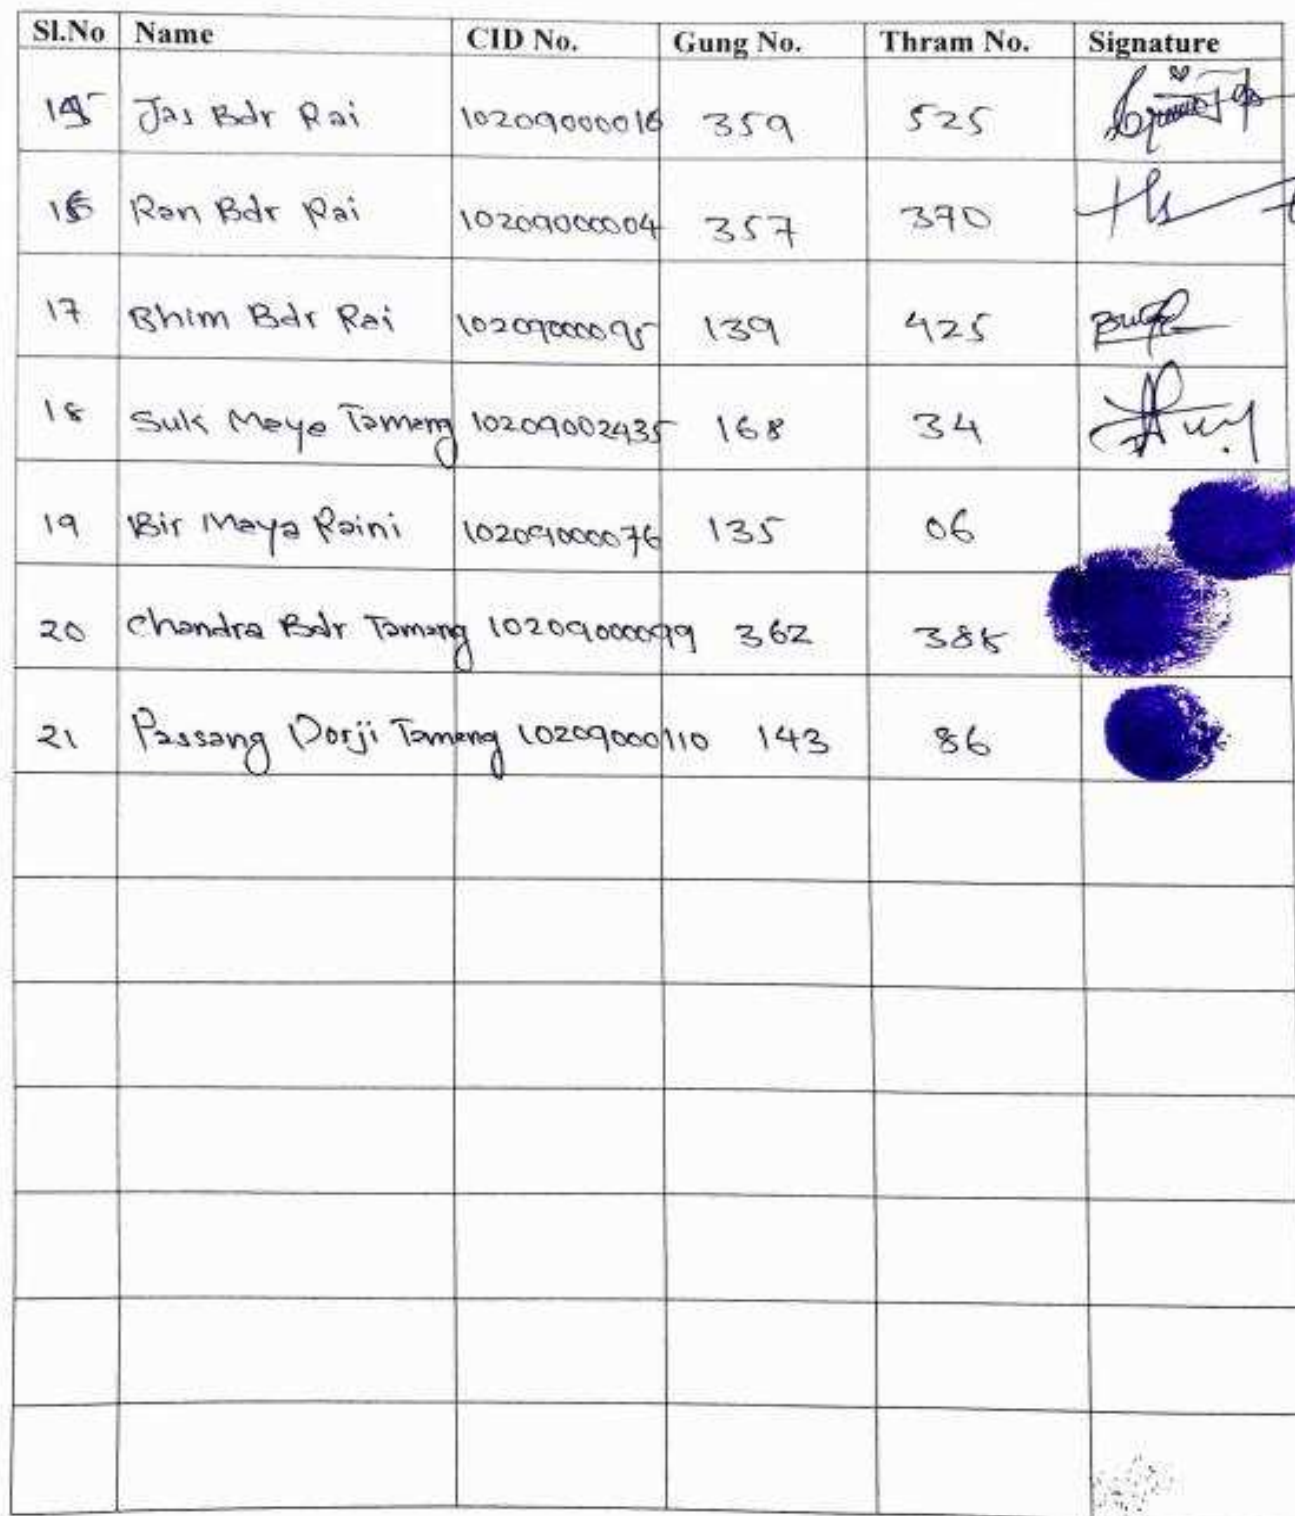 Sl.No Name CID No. Gung No. Thram No. Signature
15 Jas Bdr Rai 10209000016 359 525
16 Ran Bdr Rai 10209000004 357 370
17 Bhim Bdr Rai 10209000095 139 425
18 Suk Maya Tamang 10209002435 168 34
19 Bir Maya Raini 10209000076 135 06
20 Chandra Bdr Tamang 10209000099 362 388
21 Passang Dorji Tamang 10209000110 143 86